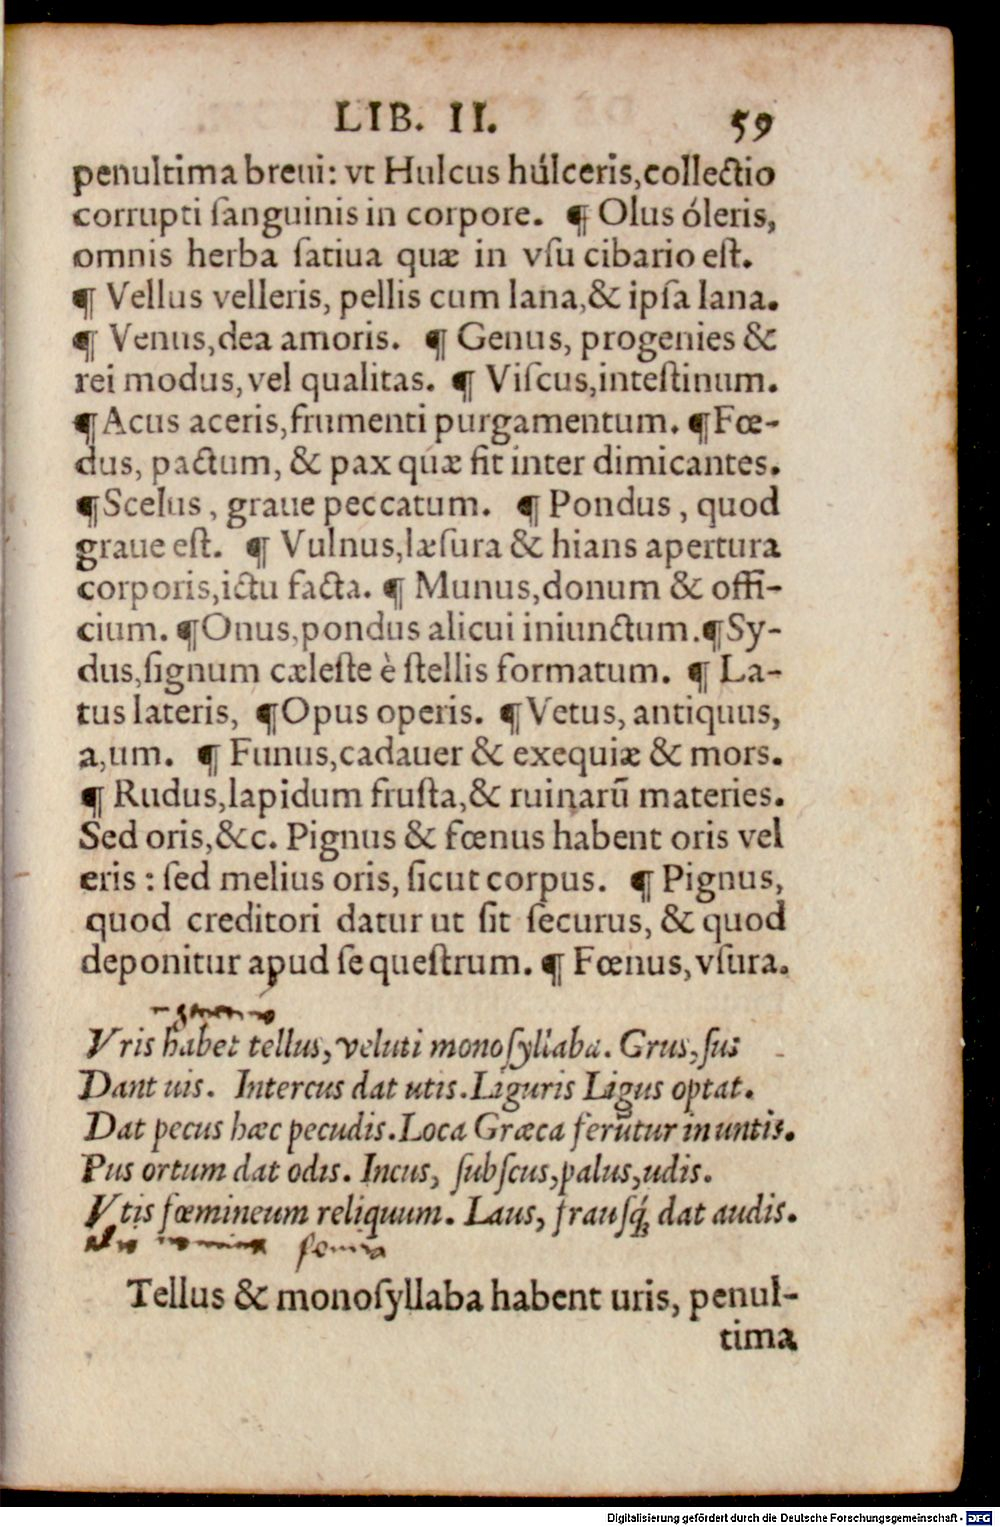 LIB. II. 59
penultima breui: vt Hulcus húlceris,collectio
corrupti ſanguinis in corpore. ¶ Olus óleris,
omnis herba ſatiua quæ in vſu cibario eſt.
¶ Vellus velleris, pellis cum lana,& ipſa lana.
¶ Venus,dea amoris. ¶ Genus, progenies &
rei modus,vel qualitas. ¶ Viſcus,inteſtinum.
¶Acus aceris,frumenti purgamentum. ¶Fœ-
dus, pactum, & pax quæ fit inter dimicantes.
¶Scelus, graue peccatum. ¶ Pondus, quod
graue eſt. ¶ Vulnus,læſura & hians apertura
corporis,ictu facta. ¶ Munus,donum & offi-
cium. ¶Onus,pondus alicui iniunctum.¶Sy-
dus,ſignum cæleſte è ſtellis formatum. ¶ La-
tus lateris, ¶Opus operis. ¶Vetus, antiquus,
a,um. ¶ Funus,cadauer & exequiæ & mors.
¶ Rudus,lapidum fruſta,& ruinarũ materies.
Sed oris,&c. Pignus & fœnus habent oris vel
eris : ſed melius oris, ſicut corpus. ¶ Pignus,
quod creditori datur ut ſit ſecurus, & quod
deponitur apud ſequeſtrum. ¶ Fœnus,vſura.
Vris habet tellus, veluti monoſyllaba. Grus,ſus
Dant uis. Intercus dat utis.Liguris Ligus optat.
Dat pecus hæc pecudis.Loca Græca ferũtur in untis.
Pus ortum dat odis. Incus, ſubſcus,palus,udis.
Vtis fœmineum reliquum. Laus, frauſq́; dat audis.
Tellus & monoſyllaba habent uris, penul-
tima
Digitalisierung gefördert durch die Deutsche Forschungsgemeinschaft - DFG